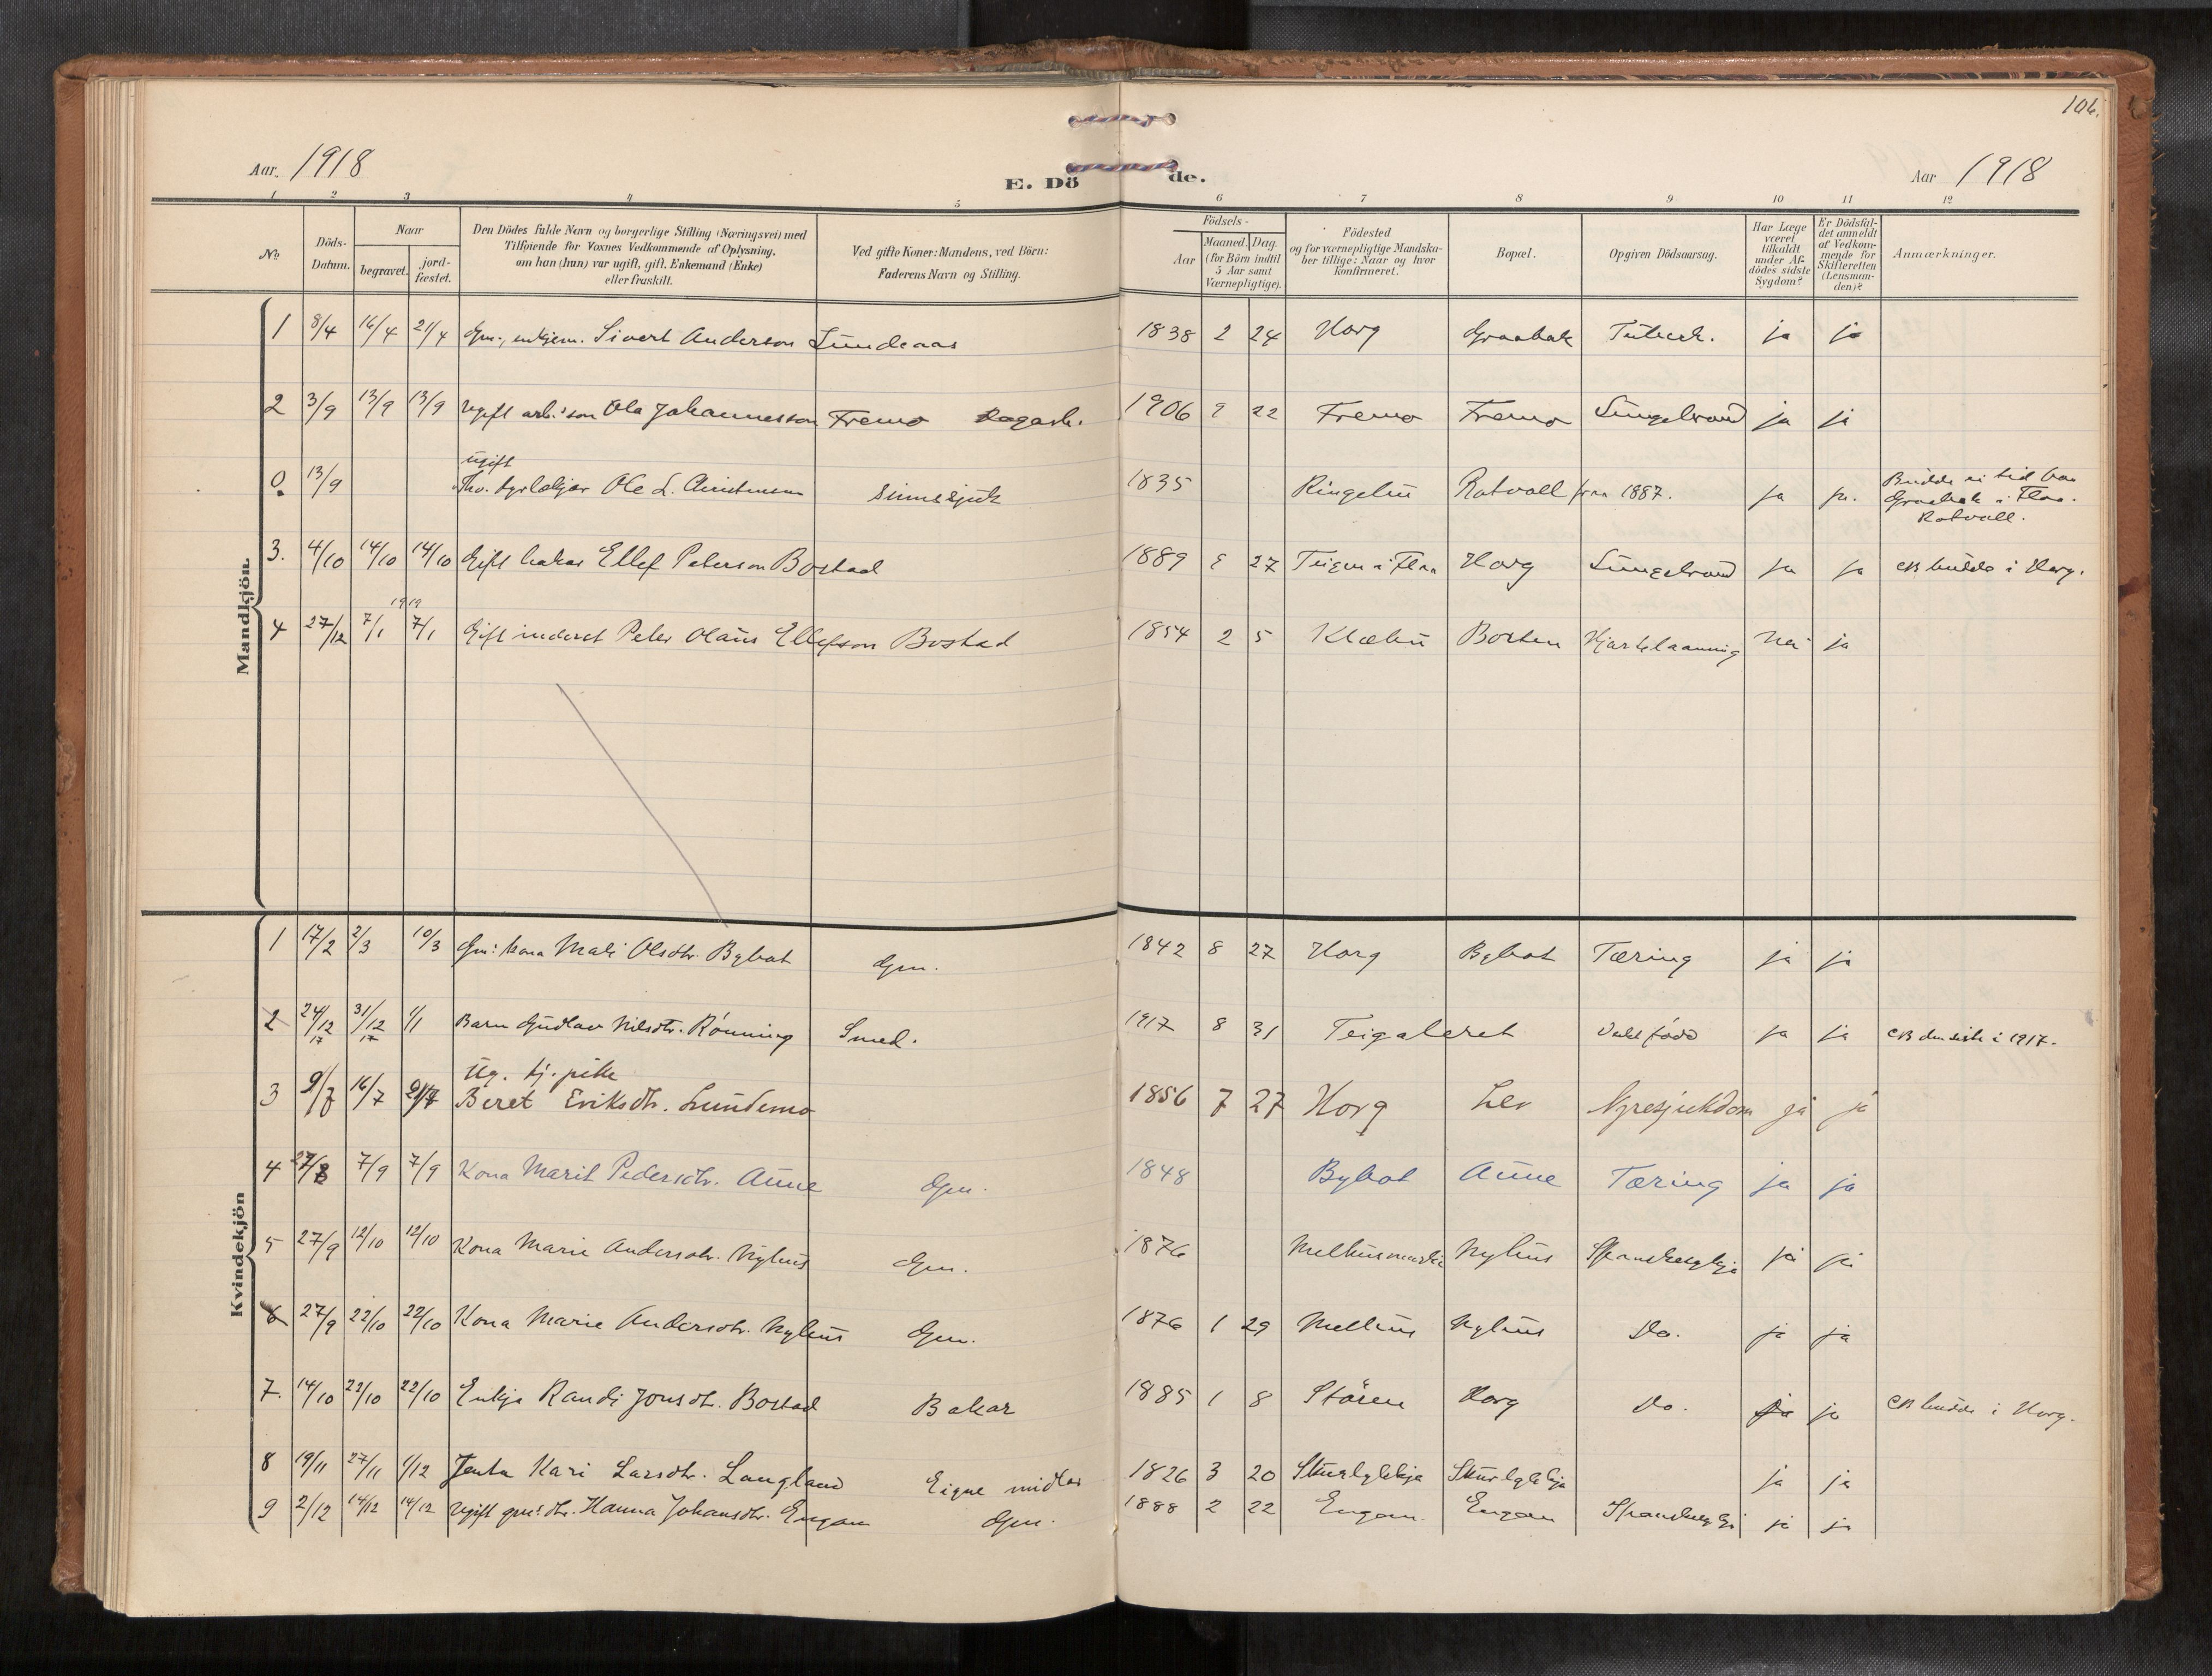 104.
Aar. 1918
E. Dö de.
Aar 1918
1 2 3 4 5 6 7 8 9 10 11 12
No.
Döds-Datum.
Naar
begravet.
jord-fæstet.
Den Dödes fulde Navn og borgerlige Stilling (Næringsvei) med
Tilföiende for Voxnes Vedkommende af Oplysning,
om han (hun) var ugift, gift, Enkemand (Enke)
eller fraskilt.
Ved gifte Koner: Mandens, ved Börn:
Faderens Navn og Stilling.
Födsels-
Aar
Maaned. Dag.
(for Börn indtil
5 Aar samt
Værnepligtige).
Födested
og for værnepligtige Mandska-
ber tillige: Naar og hvor
Konfirmeret.
Bopæl.
Opgiven Dödsaarsag.
Har Læge
været
tilkaldt
under Af-
dödes sidste
Sygdom?
Er Dödsfal-
det anmeldt
af Vedkom-
mende for
Skifteretten
(Lensman-
den)?
Anmærkninger.
Mandkjön.
1 8/4 16/4 21/4 Gm., enkjem. Sivert Anderson Lundeaas 1838 2 24 Horg Graabak Tuberk. ja ja
2 3/9 13/9 13/9 Ugift arb.'son Ola Johannesson Fremo 1906 9 22 Fremo Fremo Lungebrand ja ja
ugift
0. 13/9 Ole L. Christensen sinnssjuk 1835 Ringebu Rotvoll fraa 1887. ja ja.
Budde ei tid hos
Graabak i Flaa.
Rotvoll.
3. 4/10 14/10 14/10 Gift bakar Ellef Peterson Bostad 1889 27 Teigen i Flaa Horg Lungebrand ja ja CB budde i Horg.
1919
4 27/12 7/1 7/1 Gift inderst Peter Olaus Ellefson Bostad 1854 2 5 Klæbu Borten Hjartelaaming Nei ja
Kvindekjön
1 17/2 2/3 10/3 Gm: kona Mali Olsdtr. Bybot Gm. 1842 8 27 Horg Bybot Tæring ja ja
2 24/12 17 31/12 17 1/1 Barn Gudlaw Nilsdtr. Rönning Smed. 1917 8 31 Teigaleret ja ja CB den siste i 1917.
Ug. tj. pike
3 9/7 16/7 21/7 Beret Eriksdtr. Lundemo 1856 7 27 Horg Ler Nyresjukdom ja ja
4 27/8 7/9 7/9 Kona Marit Pedersdtr. Aune Gm. 1848 Bybot Aune Tæring ja ja
5 27/9 12/10 12/10 Kona Marie Andersdtr. Nyhus Gm. 1876 Nyhus Spanskesykja ja ja
6 27/9 22/10 22/10 Kona Marie Andersdtr. Nyhus Gm. 1876 1 29 Melhus Nyhus Do. ja ja
7. 14/10 22/10 22/10 Enkja Randi Jonsdtr. Bostad Bakar 1885 1 8 Stören Horg Do. ja ja CB budde i Horg.
8 19/11 27/11 1/12 Jenta Kari Larsdtr. Langland Eigne midlar 1826 3 20 Skurlykkja Skurlykkja ja ja
9 2/12 14/12 14/12 Ugift gm:dtr. Hanna Johansdtr. Engan Gm. 1888 2 22 Engan. Engan ja ja